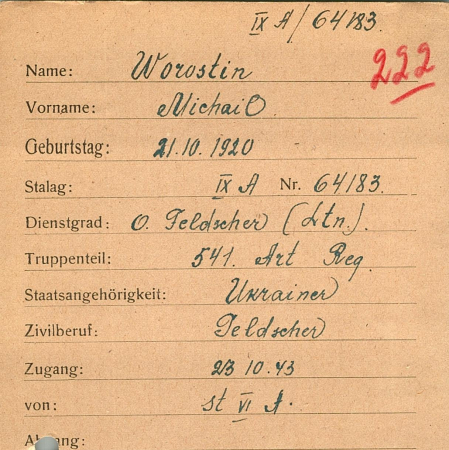 IX A/64183.
222
Name: Worostin
Vorname: Michail
Geburtstag: 21.10.1920
Stalag: IX A Nr. 64183.
Dienstgrad: O. Feldscher (Ltn.).
Truppenteil: 541. Art Reg.
Staatsangehörigkeit: Ukrainer
Zivilberuf: Feldscher
Zugang: 23 10.43
von: St VI A.
Abgang: